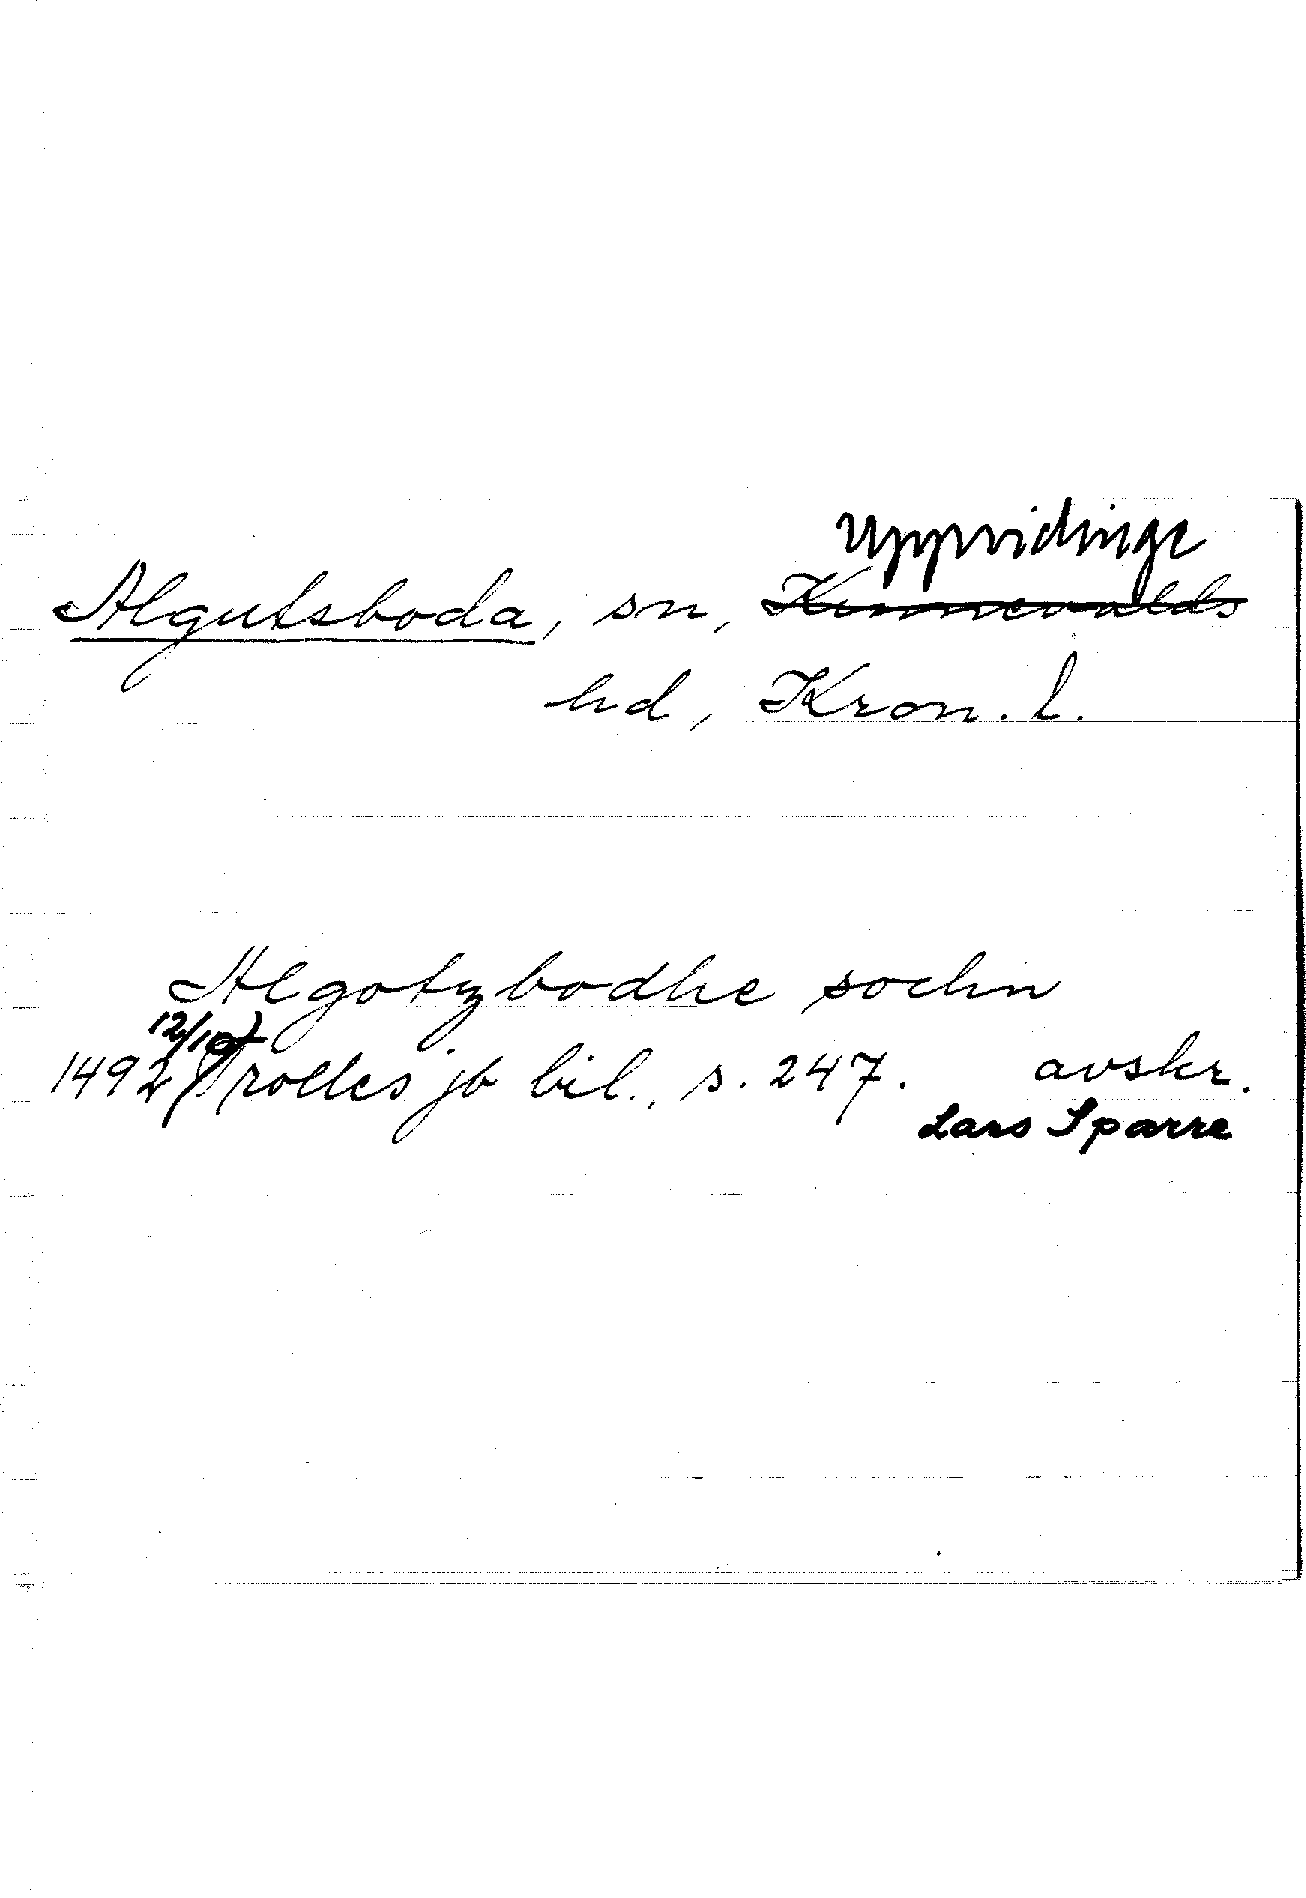 Uppvidinge
Algutsboda, sn, Kinnevalds
hd, Kron. l.
Algotzbodhe sochn
12/10
1492 Trolles jb bil., s. 247. avskr.
Lars Sparre